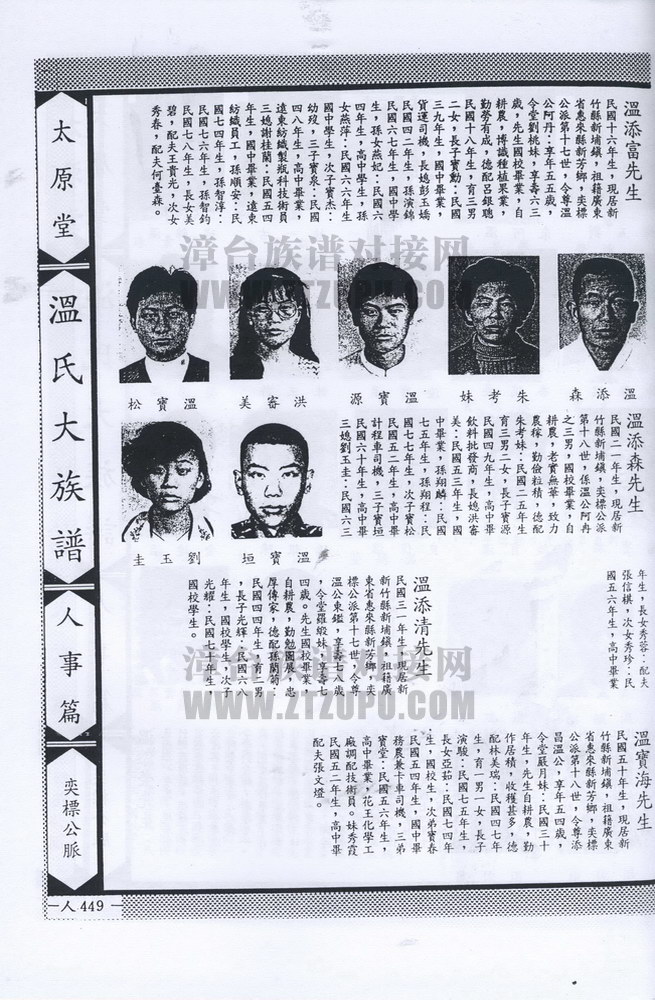 溫添富先生
民國十六年生，現居新
竹縣新埔鎮，祖籍廣東
省惠來縣新芳鄉，奕標
公派第十七世，令尊溫
公阿丹：享年五五歲，
令堂劉桃妹，享壽六三
歲，先生國校畢業，自
耕農，博識種植果業，
勤勞有成，德配呂銀聰
民國十八年生，育三男
二女，長子寶勳：民國
三九年生，高中畢業，
貨運司機，長媳彭玉嬌
民國四二年生，孫演錦
民國六七年生，國中學
生，孫女燕妃：民國六
四年生，高中學生，孫
女燕萍：民國六六年生
國中學生，次子寶杰：
幼歿，三子寶泉：民國
四八年生，高中畢業，
遠東紡織製瓶科技術員
三媳謝桂蘭：民國五四
年生，國中畢業，遠東
紡織員工，孫順安：民
國七四年生，孫智淳：
民國七六年生，孫智鈞
民國七八年生，長女美
碧，配夫王貴光，次女
秀春，配夫何臺森。
溫添森
朱考妹
溫寶源
洪審美
溫寶松
溫添森先生
民國二一年生，現居新
竹縣新埔鎮，奕標公派
第十八世，係溫公阿冉
之三男，國校畢業，自
耕農，老實無華，致力
農稼，勤儉粒積，德配
朱考妹：民國二五年生
育三男二女，長子寶源
民國四九年生，高中畢
飲料批發商，長媳洪審
美：民國五三年生，國
中畢業，孫翔麟：民國
七五年生，孫翔程：民
國七七年生，次子寶松
民國五一年生，高中畢
計程車司機，三子寶垣
民國六十年生，高中畢
三媳劉玉圭：民國六三
溫寶垣
劉玉圭
年生，長女秀蓉：配夫
張信棋，次女秀珍：民
國五六年生，高中畢業
溫添清先生
民國三一年生，現居新
竹縣新埔鎮，祖籍廣
東省惠來縣新芳鄉，奕
標公派第十七世，令尊
溫公東鑑，享壽七八歲
，令堂羅緞妹，享壽七
四歲。先生國校畢業，
自耕農，勤勉圖展，忠
厚傳家，德配孫蘭菊：
民國四四年生，育二男
，長子光輝：民國六八
年生，國校學生，次子
光耀：民國七一年生，
國校學生。
溫寶海先生
民國五十年生，現居新
竹縣新埔鎮，祖籍廣東
省惠來縣新芳鄉，奕標
公派第十八世，令尊添
昌溫公，享年五四歲，
令堂嚴月妹：民國三十
年生，先生自耕農，勤
作居積，收穫甚多，德
配林美瑞：民國四七年
生，育一男一女，長子
演駿：民國七五年生，
長女亞茹：民國七四年
生，國校生，次弟寶春
民國五四年生，國中畢
務農兼卡車司機，三弟
寶堂：民國五六年生，
高中畢業，花王化學工
廠調配技術員。妹秀霞
民國五二年生，高中畢
配夫張文燈。
太原堂
溫氏大族譜
人事篇
奕標公脈
人449
漳台族谱对接网
WWW.ZTZUPU.COM
漳台族谱对接网
WWW.ZTZUPU.COM